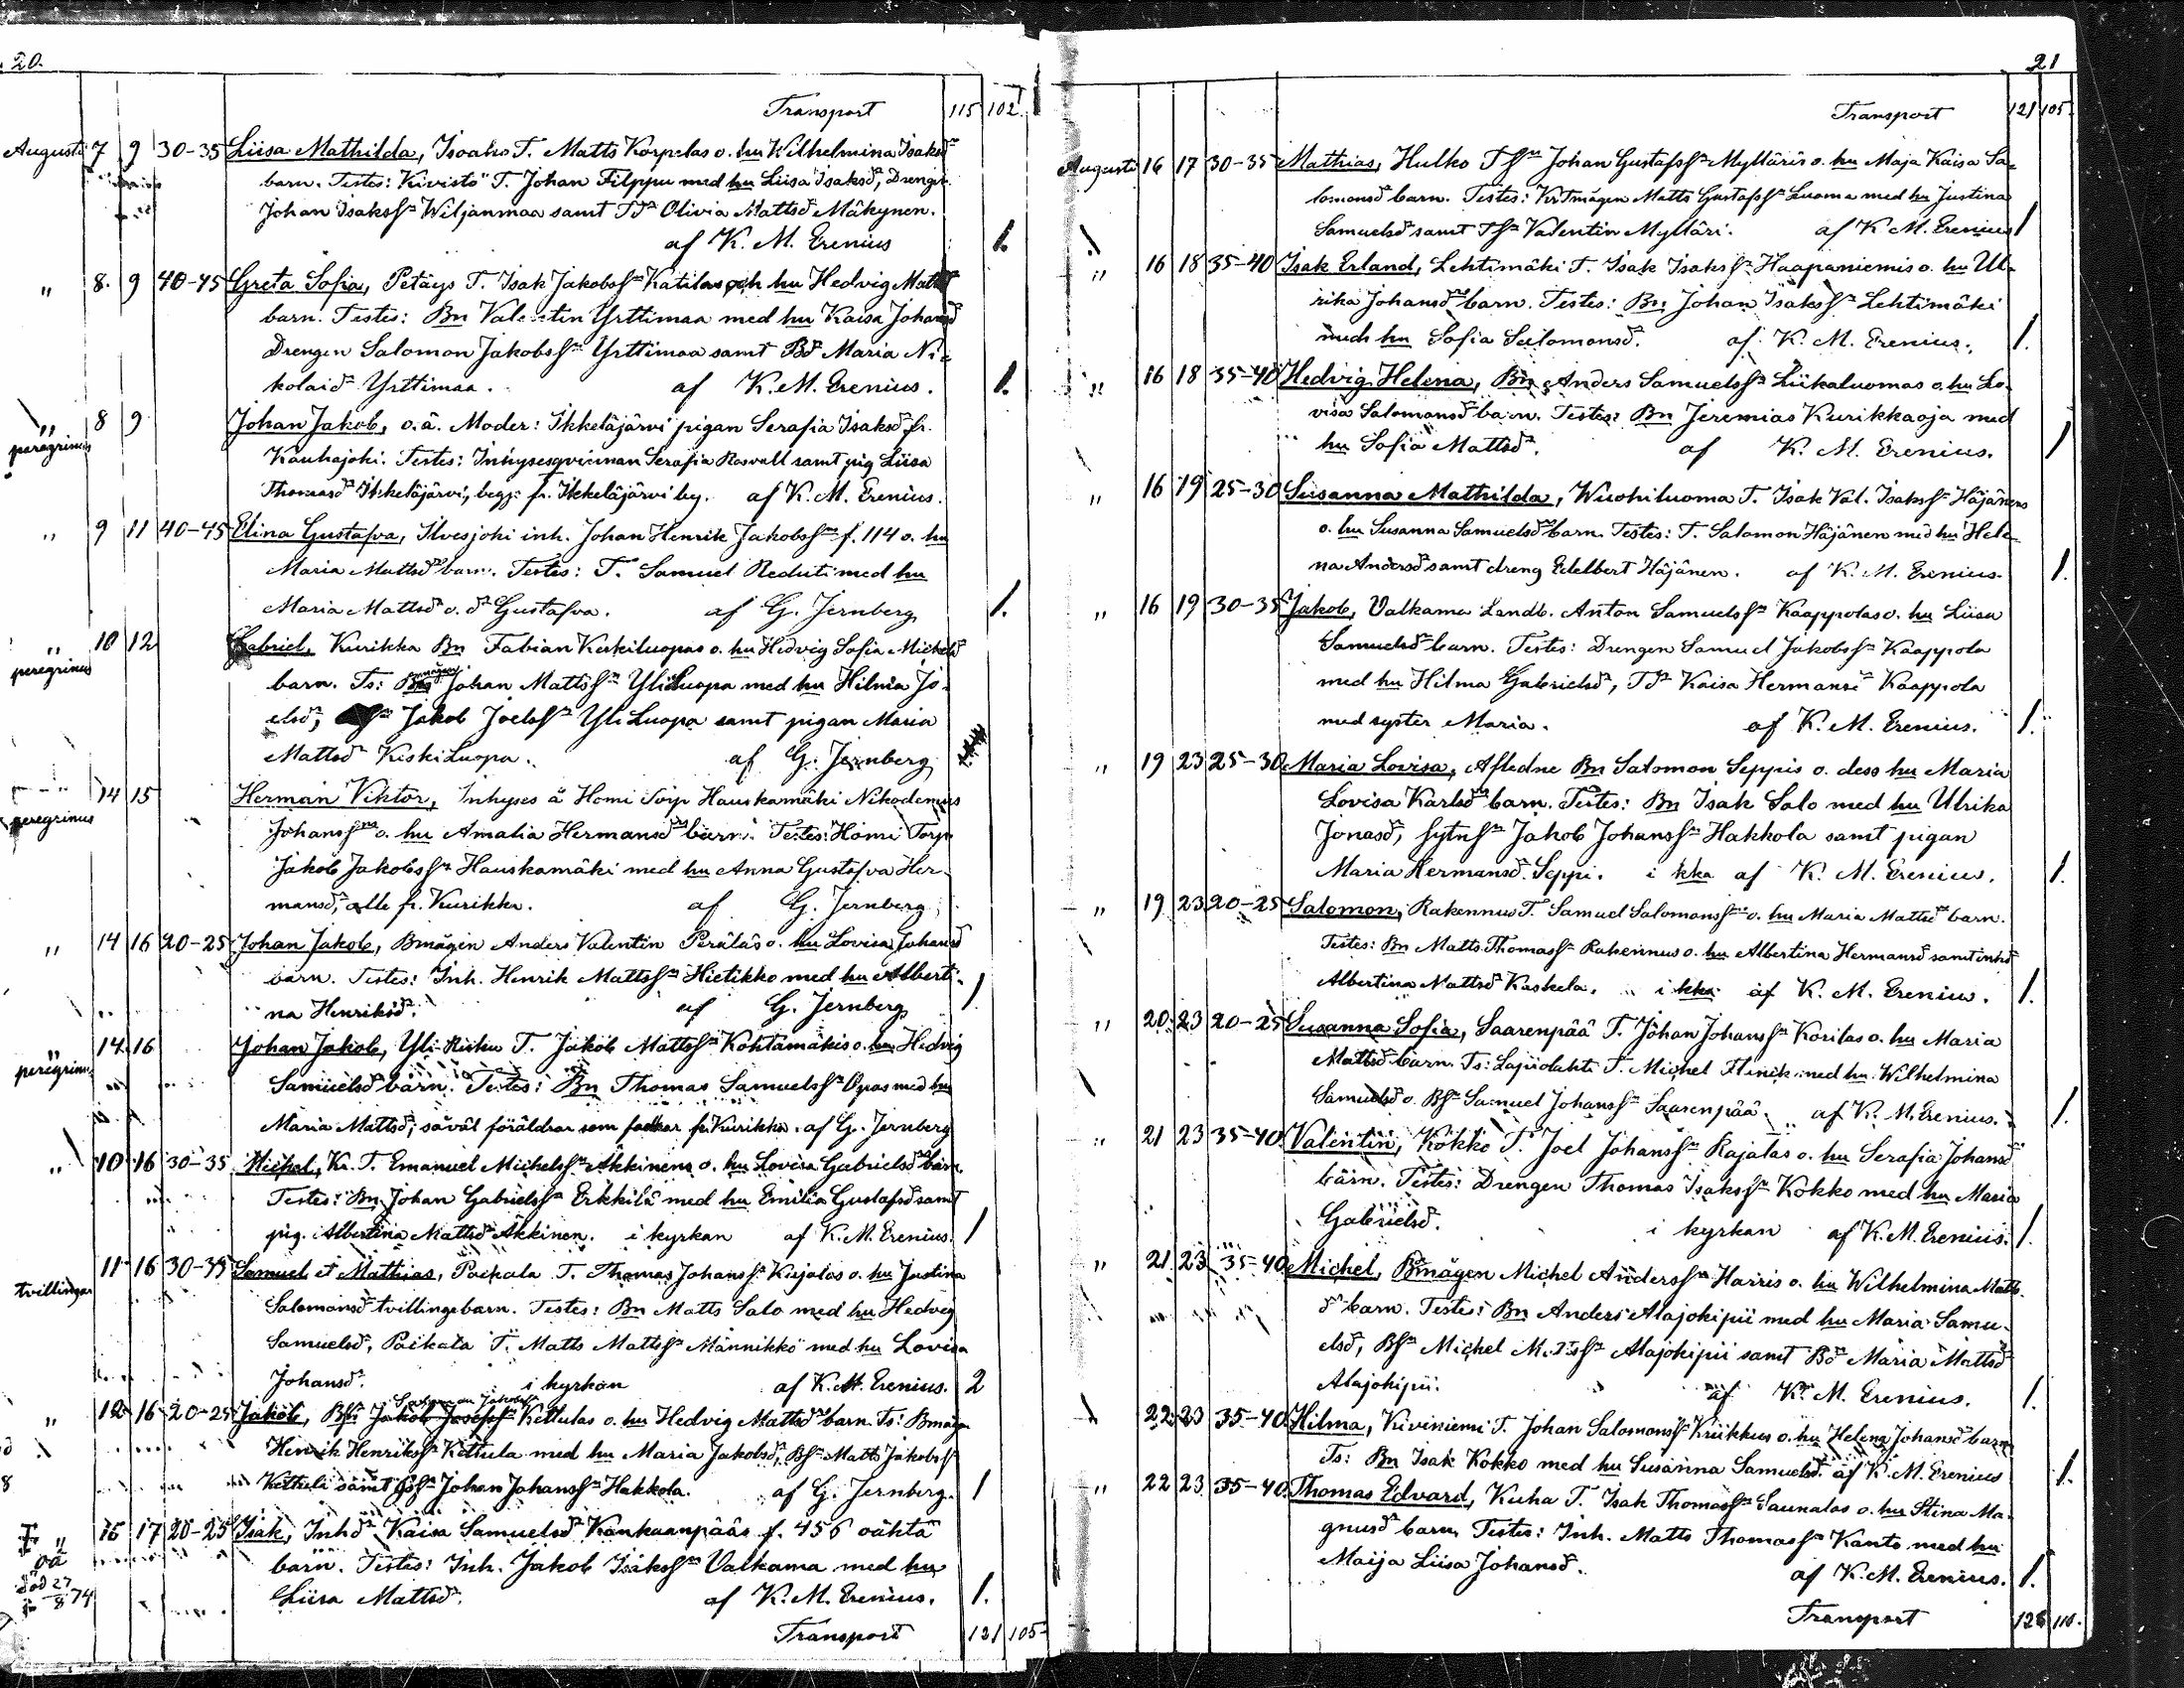 20.
Transport 115 102
Augusti 7 9 30-35 Liisa Mathilda, Isoaho T. Matts Korpelas o. hu Wilhelmina Isaksdr
barn. Testes: Kivistö T. Johan Filppu med hu Liisa Isaksdr, Drengen
Johan Isakssn Wiljanmaa samt TDr Olivia Mattsdr Mäkynen.
af K. M. Erenius 1.
" 8. 9 40-45 Greta Sofia, Petäys T. Isak Jakobssn Katilas och hu Hedvig Mattsdr
barn. Testes: Bn Valentin Yrttimaa med hu Kaisa Johansdr
Drengen Salomon Jakobssn Yrttimaa samt Bdr Maria Ni-
kolaidr Yrttimaa. af K. M. Erenius. 1.
" peregrinus 8 9 Johan Jakob, o.ä. Moder: Ikkeläjärvi pigan Serafia Isaksdr fr.
Kauhajoki. Testes: Inhysesqvinnan Serafia Rosvall samt pig Liisa
Thomasdr Ikkeläjärvi, begge fr. Ikkeläjärvi by. af K. M. Erenius.
" 9 11 40-45 Elina Gustafva, Ilvesjoki inh. Johan Henrik Jakobssns f. 114 o. hu
Maria Mattsdrs barn. Testes: T. Samuel Reduti med hu
Maria Mattsdr o. dr Gustafva. af G. Jernberg 1.
" peregrinus 10 12 Gabriel, Kurikka Bn Fabian Keskiluopas o. hu Hedvig Sofia Michelsdr
barn. Ts: Bmågen Johan Mattssn YliLuopa med hu Hilma Jo-
elsdr, Jakob Joelssn YliLuopa samt pigan Maria
Mattsdr KeskiLuopa. af G. Jernberg
" peregrinus 14 15 Herman Viktor, Inhyses å Homi Torp Hauskamäki Nikodemus
Johanssns o. hu Amalia Hermansdrs barn. Testes: Homi Torp.
Jakob Jakobssn Hauskamäki med hu Anna Gustafva Her-
mansdr, alle fr. Kurikka. af G. Jernberg
" 14 16 20-25 Johan Jakob, Bmågen Anders Valentin Peräläs o. hu Lovisa Johansdr
barn. Testes: Inh. Henrik Mattssn Hietikko med hu Alberti-
na Henriksdr. af G. Jernberg 1
" peregrin. 14 16 Johan Jakob, Yli Risku T. Jakob Mattssn Kohtamäkis o. hu Hedvig
Samuelsdr barn. Testes: Bn Thomas Samuelssn Opas med hu
Maria Mattsdr, såväl föräldrar som faddrar fr. Kurikka. af G. Jernberg
" 10 16 30-35 Michel, Kr. T. Emanuel Michelssn Äkkinens o. hu Lovisa Gabrielsdrs barn.
Testes: Bn Johan Gabrielssn Erkkilä med hu Emilia Gustafsdr samt
pig. Albertina Mattsdr Äkkinen. i kyrkan af K. M. Erenius. 1
tvillingar 11 16 30-35 Samuel et Mathias, Paikala T. Thomas Johanssn Kujalas o. hu Justina
Salomonsdr tvillingebarn. Testes: Bn Matts Salo med hu Hedvig
Samuelsdr, Paikala T. Matts Mattssn Männikkö med hu Lovisa
Johansdr. i kyrkan af K. M. Erenius. 2
" 12 16 20-25 Jakob, Bsn Jakob Josefssn Kettulas o. hu Hedvig Mattsdrs barn. Ts: Bmågen
Henrik Henrikssn Kettula med hu Maria Jakobsdr, Bsn Matts Jakobssn
Kettula samt Johan Johanssn Hakkola. af G. Jernberg. 1
" oä död 27/8 74 15 17 20-25 Isak, Inhdr Kaisa Samuelsdr Kankaanpääs f. 456 oäkta
barn. Testes: Inh. Jakob Isakssn Valkama med hu
Liisa Mattsdr. af K. M. Erenius. 1.
Transport 121 105
21
Transport 121 105
Augusti 16 17 30-35 Mathias, Hulko Tsn Johan Gustafssn Mylläris o. hu Maja Kaisa Sa-
lomonsdr barn. Testes: KrTmågen Matts Gustafssn Luoma med hu Justina
Samuelsdr samt Tsn Valentin Mylläri. af K. M. Erenius 1
" 16 18 35-40 Isak Erland, Lehtimäki T. Isak Isakssn Haapaniemis o. hu Ul-
rika Johansdrs barn. Testes: Bn Johan Isakssn Lehtimäki
med hu Sofia Salomonsdr. af K. M. Erenius. 1.
" 16 18 35-40 Hedvig Helena, Bn Anders Samuelssn Liikaluomas o. hu Lo-
visa Salomonsdr barn. Testes: Bn Jeremias Kurikkaoja med
hu Sofia Mattsdr. af K. M. Erenius. 1
" 16 19 25-30 Susanna Mathilda, Wuohiluoma T. Isak Val. Isakssn Häjänens
o. hu Susanna Samuelsdrs barn. Testes: T. Salomon Häjänen med hu Hele-
na Andersdr samt dreng Edelbert Häjänen. af K. M. Erenius. 1.
" 16 19 30-35 Jakob, Valkama Landb. Anton Samuelssn Kaappolas o. hu Liisa
Samuelsdr barn. Testes: Drengen Samuel Jakobssn Kaappola
med hu Hilma Gabrielsdr, TDr Kaisa Hermansdr Kaappola
med syster Maria. af K. M. Erenius. 1.
" 19 23 25-30 Maria Lovisa, Afledne Bn Salomon Seppis o. dess hu Maria
Lovisa Karlsdrs barn. Testes: Bn Isak Salo med hu Ulrika
Jonasdr, sytnsn Jakob Johanssn Hakkola samt pigan
Maria Hermansdr Seppi. i kka af K. M. Erenius. 1.
" 19 23 20-25 Salomon, Rakennus T. Samuel Salomonssns o. hu Maria Mattsdrs barn.
Testes: Bn Matts Thomassn Rakennus o. hu Albertina Hermansdr samt inhdr
Albertina Mattsdr Kaskela. i kka af K. M. Erenius. 1.
" 20 23 20-25 Susanna Sofia, Saarenpää T. Johan Johanssn Korilas o. hu Maria
Mattsdr barn. Ts: Lapiolahti T. Michel Flinik med hu Wilhelmina
Samuelsdr o. Bsn Samuel Johanssn Saarenpää. af K. M. Erenius. 1.
" 21 23 35-40 Valentin, Kokko T. Joel Johanssn Rajalas o. hu Serafia Johansdr
barn. Testes: Drengen Thomas Isakssn Kokko med hu Maria
Gabrielsdr. i kyrkan af K. M. Erenius. 1.
" 21 23 35-40 Michel, Bmågen Michel Anderssn Harris o. hu Wilhelmina Matts-
drs barn. Testes: Bn Anders Alajokipii med hu Maria Samu-
elsdr, Bsn Michel Mattssn Alajokipii samt Bdr Maria Mattsdr
Alajokipii. af K. M. Erenius. 1.
22 23 35-40 Hilma, Kiviniemi T. Johan Salomonssn Kriikkus o. hu Helena Johansdrs barn
Ts: Bn Isak Kokko med hu Susanna Samuelsdr. af K. M. Erenius 1.
" 22 23 35-40 Thomas Edvard, Kuha T. Isak Thomassn Saunalas o. hu Stina Ma-
gnusdr barn. Testes: Inh. Matts Thomassn Kanto med hu
Maija Liisa Johansdr. af K. M. Erenius. 1.
Transport 128 110.